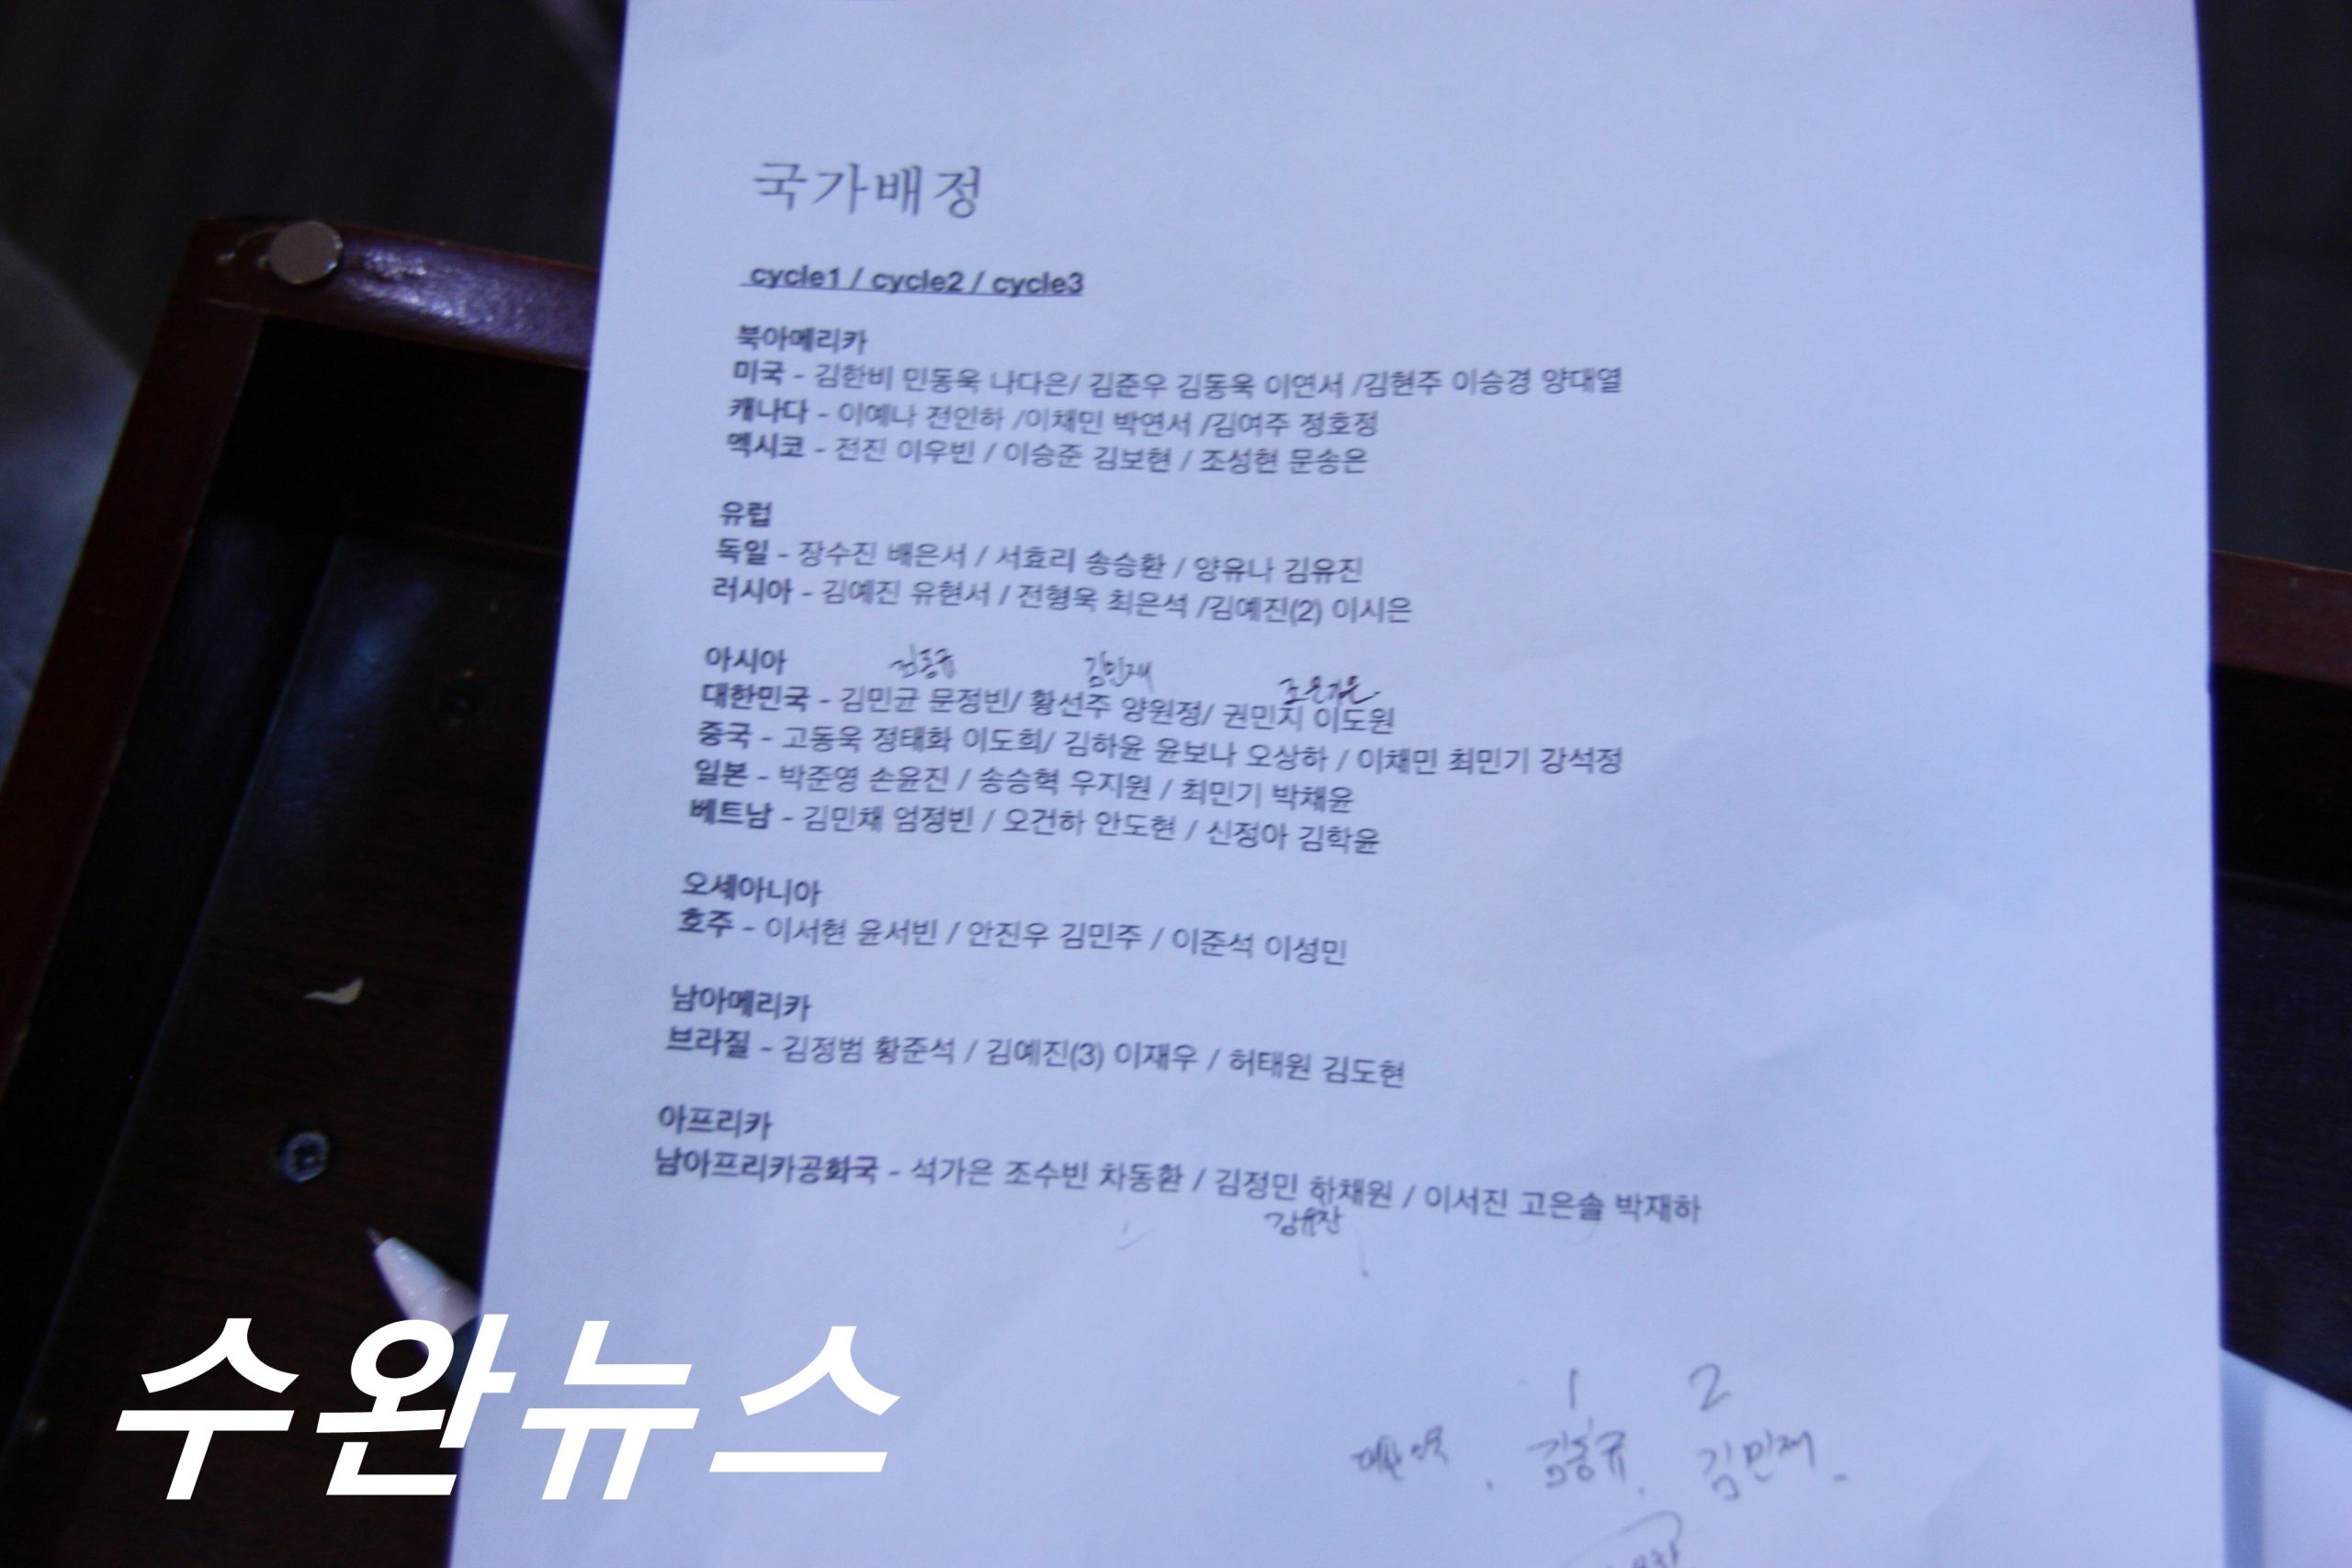 국가배정
cycle1 / cycle2 / cycle3
북아메리카
미국 - 김한비 민동욱 나다은/ 김준우 김동욱 이연서 /김현주 이승경 양대열
캐나다 - 이예나 전인하 /이채민 박연서 /김여주 정호정
멕시코 - 전진 이우빈 / 이승준 김보현 / 조성현 문송은
유럽
독일 - 장수진 배은서 / 서효리 송승환 / 양유나 김유진
러시아 - 김예진 유현서 / 전형욱 최은석 /김예진(2) 이시은
아시아
김민재
대한민국 - 김민균 문정빈/ 황선주 양원정/ 권민지 이도원
중국 - 고동욱 정태화 이도희/ 김하윤 윤보나 오상하 / 이채민 최민기 강석정
일본 - 박준영 손윤진 / 송승혁 우지원 / 최민기 박채윤
베트남 - 김민채 엄정빈 / 오건하 안도현 / 신정아 김학윤
오세아니아
호주 - 이서현 윤서빈 / 안진우 김민주 / 이준석 이성민
남아메리카
브라질 - 김정범 황준석 / 김예진(3) 이재우 / 허태원 김도현
아프리카
남아프리카공화국 - 석가은 조수빈 차동환 / 김정민 하채원 / 이서진 고은솔 박재하
1 2
김동규 김민재
수완뉴스